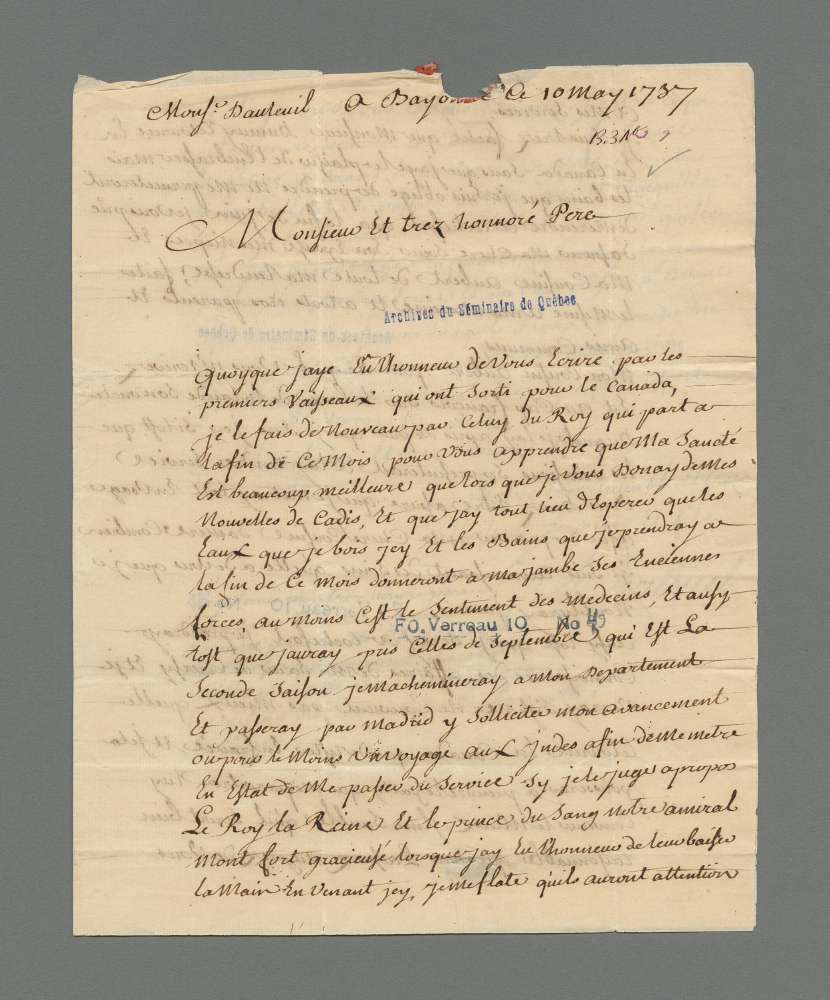 Monsr. Dauteuil A Bayonne Ce 10 May 1737
B. 3 No
Monsieur Et trez honnoré Pere
Archives du Séminaire de Québec
Quoyque jaye Eu lhonneur de vous Ecrire par les
premiers Vaisseaux qui ont sorti pour le Canada,
je le fais de Nouveau par Celuy du Roy qui part a
la fin de Ce Mois pour vous apprendre que Ma Sancté
Est beaucoup meilleure que lors que je vous Donay de Mes
Nouvelles de Cadis, Et que jay tout lieu dEsperer que les
Eaux que je bois jcy Et les Bains que je prendray a
la fin de Ce Mois donneront a Ma jambe Ses Enciennes
forces, au Moins C'est le Sentiment des Medecins, Et ausy
FO. Verreau 10 No 49
tost que jauray pris Celles de Septembre, qui Est La
Seconde Saison je Machemineray a Mon Departement
Et passeray par Madrid y Solliciter Mon avancement
ou pour le Moins Un Voyage aux jndes afin de Me metre
En Estat de Me passer du Service Sy je le juge apropos
Le Roy la Reine Et le prince du Sang Notre amiral
Mont fort gracieusé lorsque jay Eu lhonneur de leur baiser
la Main En Venant jcy, je Me flate quils auront attention